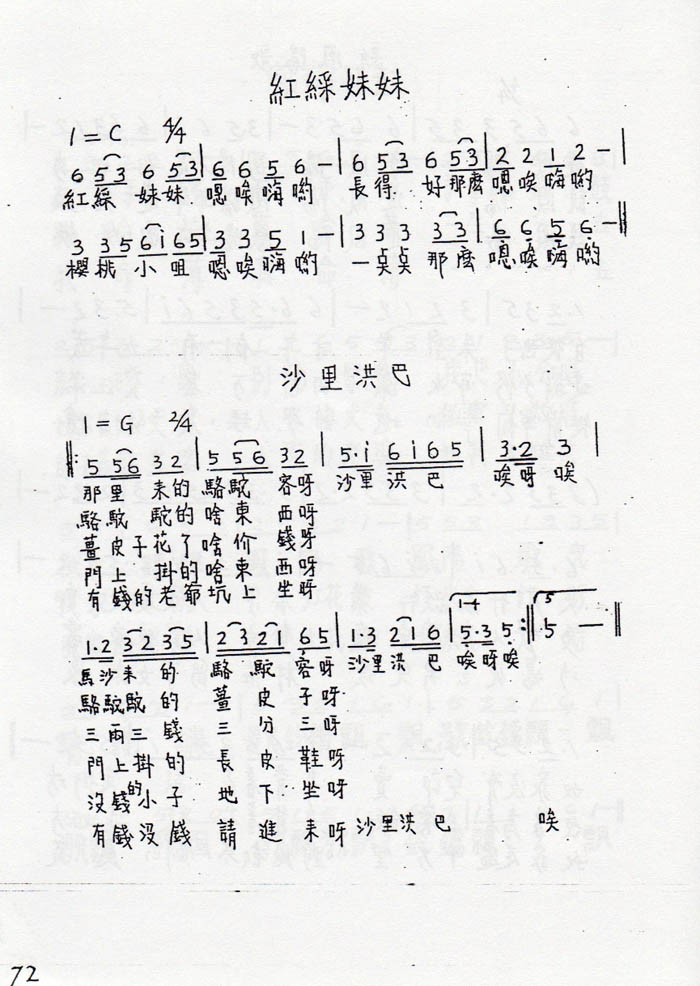 紅綵妹妹
1=C 4/4
6 53 6 53|6 6 5 6 —|6 53 6 53|2 2 1 2 —|
紅綵 妹妹 嗯唉嗨喲 長得 好那麽嗯唉嗨喲
3 35 6i 65|3 3 5 1 —|3 3 3 33|6 6 5 6 —‖
櫻桃小咀 嗯唉嗨喲 一桌桌 那麽 嗯唉嗨喲
沙里洪巴
1=G 2/4
‖: 5 56 32|5 56 32|5·i 6i65|3·2 3|
那里 來的 駱駝 客呀 沙里洪巴 唉呀唉
駱駝 駝的 啥東 西呀
薑皮子花了啥价 錢呀
門上 掛的啥東 西呀
有錢的老爺坑上 坐呀
1-4 5
1·2 32 35|2321 65|1·3 216|5·3 5 :‖5 —‖
馬沙來的 駱駝 客呀 沙里洪巴 唉呀唉
駱駝駝的 薑皮子呀
三兩三錢 三分三呀
門上掛的 長皮鞋呀
沒錢的小子 地下坐呀
有錢沒錢 請進來呀 沙里洪巴 唉
72